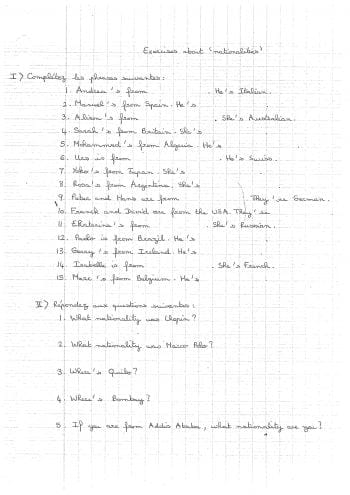 Exercises about 'nationalities'
I) Complétez les phrases suivantes :
1. Andrea's from . He's Italian.
2. Manuel's from Spain. He's
3. Alison's from . She's Australian.
4. Sarah's from Britain. She's
5. Mohammed's from Algeria. He's
6. Urs is from . He's Swiss.
7. Yoko's from Japan. She's
8. Rosa's from Argentina. She's
9. Peter and Hans are from . They're German.
10. Franck and David are from the USA. They're
11. Ekaterina's from . She's Russian.
12. Paolo is from Brazil. He's
13. Gerry's from Ireland. He's
14. Isabelle is from . She's French.
15. Marc's from Belgium. He's
II) Répondez aux questions suivantes :
1. What nationality was Chopin?
2. What nationality was Marco Polo?
3. Where's Quito?
4. Where's Bombay?
5. If you are from Addis Ababa, what nationality are you?